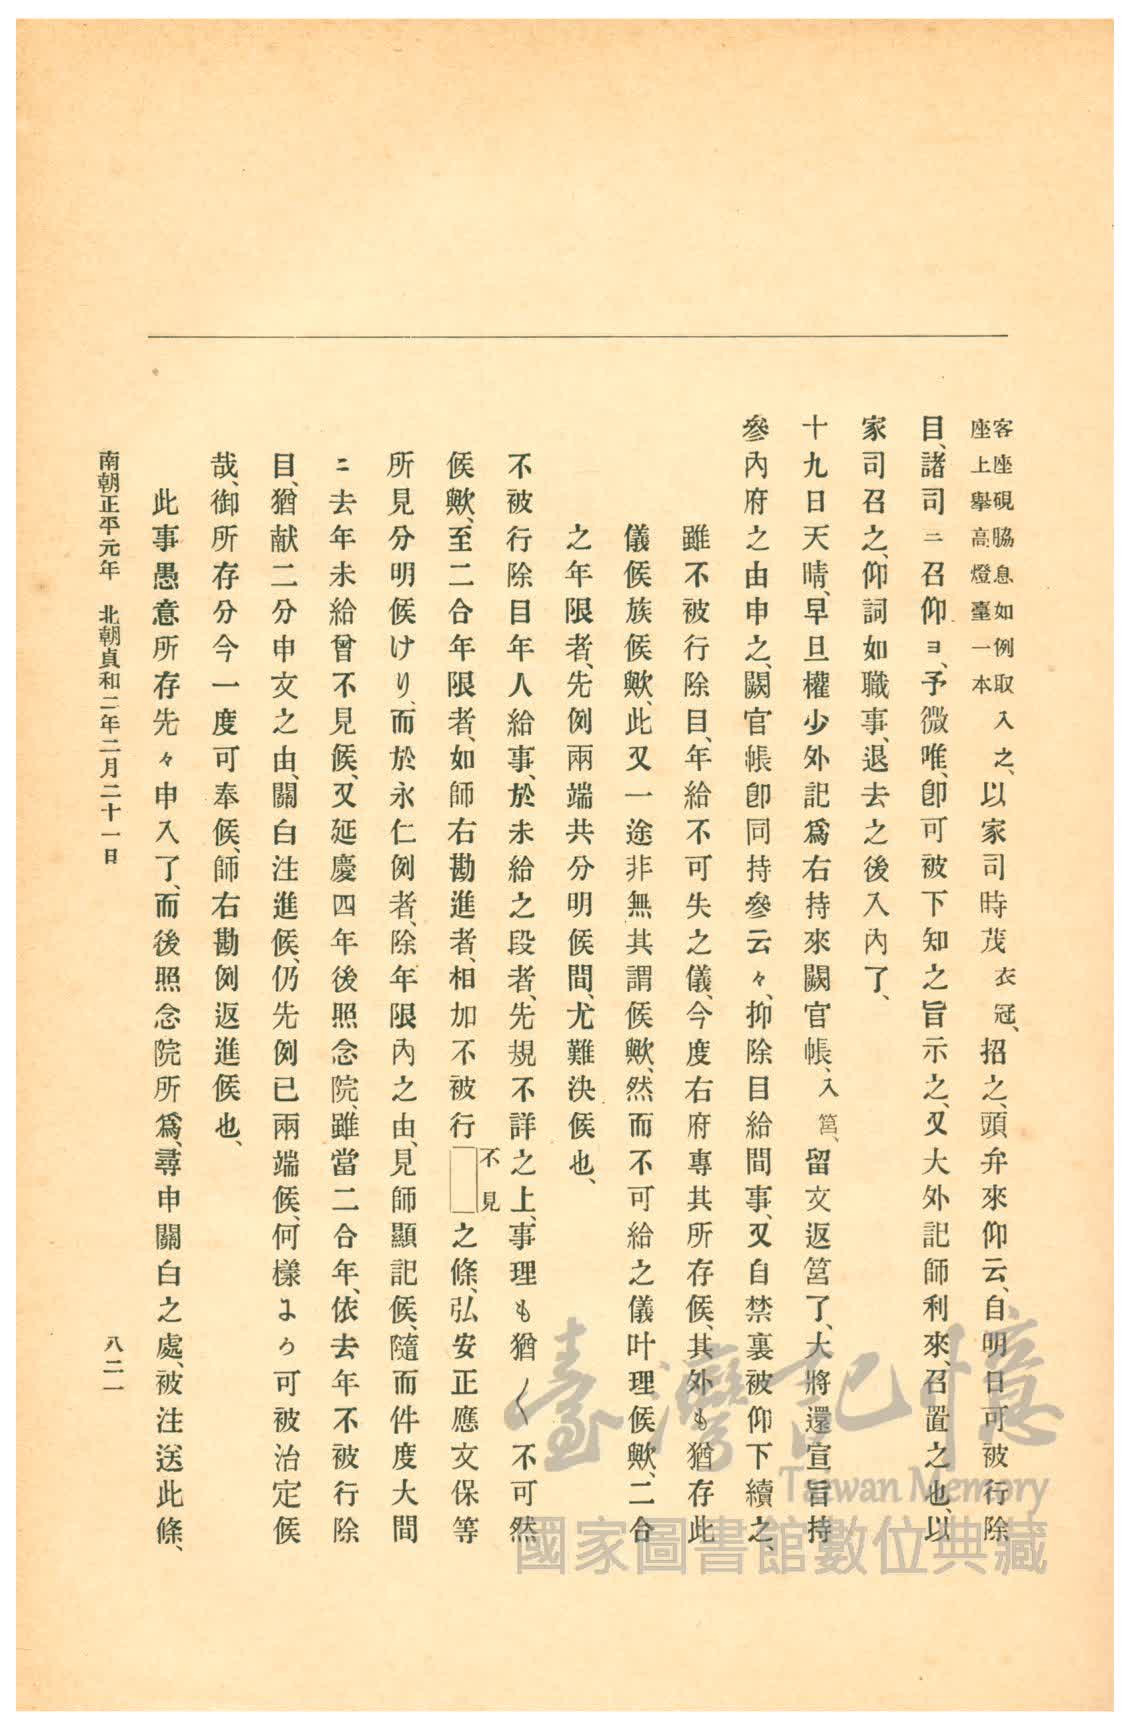 客座硯脇息如例取
座上擧高燈臺一本
入之、以家司時茂衣冠、招之、頭弁來仰云、自明日可被行除
目、諸司ニ召仰ヨ、予微唯、卽可被下知之旨示之、又大外記師利來、召置之也、以
家司召之、仰詞如職事、退去之後入內了、
十九日天晴、早旦權少外記爲右持來闕官帳、入筥、留文返筥了、大將還宣旨持
參內府之由申之、闕官帳卽同持參云々、抑除目給間事、又自禁裏被仰下續之、
雖不被行除目、年給不可失之儀、今度右府專其所存候、其外も猶存此
儀候族候歟、此又一途非無其謂候歟、然而不可給之儀叶理候歟、二合
之年限者、先例兩端共分明候間、尤難決候也、
不被行除目年人給事、於未給之段者、先規不詳之上、事理も猶〳〵不可然
候歟、至二合年限者、如師右勘進者、相加不被行
不見
之條、弘安正應文保等
所見分明候けり、而於永仁例者、除年限內之由、見師顯記候、隨而件度大間
ニ去年未給曾不見候、又延慶四年後照念院、雖當二合年、依去年不被行除
目、猶献二分申文之由、關白注進候、仍先例已兩端候、何樣ようの可被治定候
哉、御所存分今一度可奉候、師右勘例返進候也、
此事愚意所存先々申入了、而後照念院所爲、尋申關白之處、被注送此條、
南朝正平元年 北朝貞和二年二月二十一日
八二一
臺灣記憶
Taiwan Memory
國家圖書館數位典藏